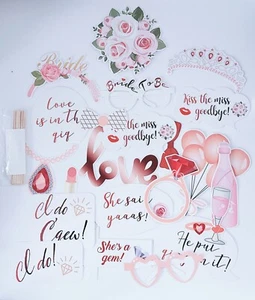 Bride
Bride To Be
Love
is in th
gig
Kiss the miss
goodbye!
Kiss the miss
goodbye!
love
I do
Crew!
She said
yaaas!
I do!
She's
a gem!
He pu
n it!